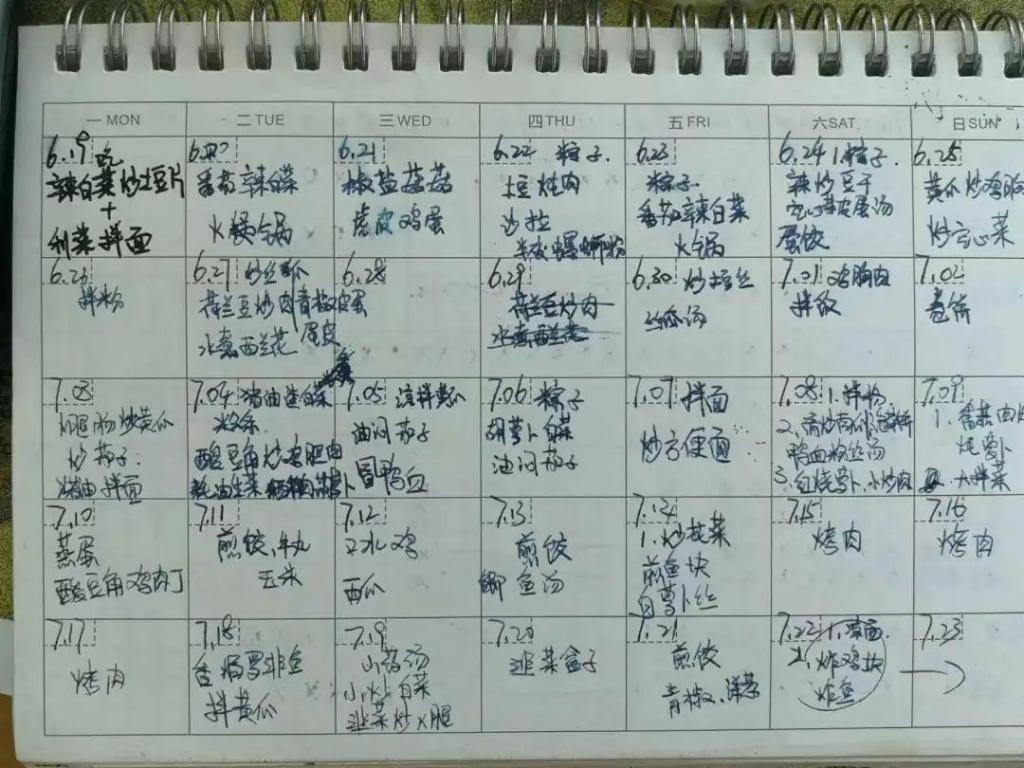 一 MON
二 TUE
三 WED
四 THU
五 FRI
六 SAT.
日 SUN
6.19 吃
辣白菜炒土豆片
+
利菜拌面
6.20
番茄辣白菜
火锅
6.21
椒盐蘑菇
虎皮鸡蛋
6.22 粽子.
土豆炖肉
沙拉
螺蛳粉
6.23
粽子.
番茄辣白菜
火锅
6.24 1.粽子.
辣炒豆干
皮蛋汤
蛋饺
6.25
黄瓜炒鸡胸
炒空心菜
6.26
拌粉
6.27 炒丝瓜
荷兰豆炒肉青椒皮蛋
水煮西兰花 蛋皮
6.28
6.29
荷兰豆炒肉
水煮西兰花
6.30 炒土豆丝
汤
7.01 鸡胸肉
拌饭
7.02
卷饼
7.03
炒黄瓜
炒茄子
猪油拌面
7.04 猪油渣白菜
米条
酸豆角炒鸡胗肉
耗油生菜
7.05 凉拌黄瓜
油闷茄子
冒鸭血
7.06 粽子
胡萝卜白菜
油闷茄子
7.07 拌面
炒方便面
7.08 1.拌粉
2、
鸭血粉丝汤
3、红烧萝卜、小炒肉
7.09
1.
炖萝卜
大拌菜
7.10
蒸蛋
酸豆角鸡肉丁
7.11
煎饺、牛丸
玉米
7.12
口水鸡
西瓜
7.13
煎饺
鲫鱼汤
7.14
1.炒菜
煎鱼块
白萝卜丝
7.15
烤肉
7.16
烤肉
7.17
烤肉
7.18
香煎罗非鱼
拌黄瓜
7.19
山药汤
小炒白菜
韭菜炒火腿
7.20
韭菜盒子
7.21
煎饺
青椒、洋葱
7.22 1.凉面.
2、炸鸡块
炸鱼
7.23